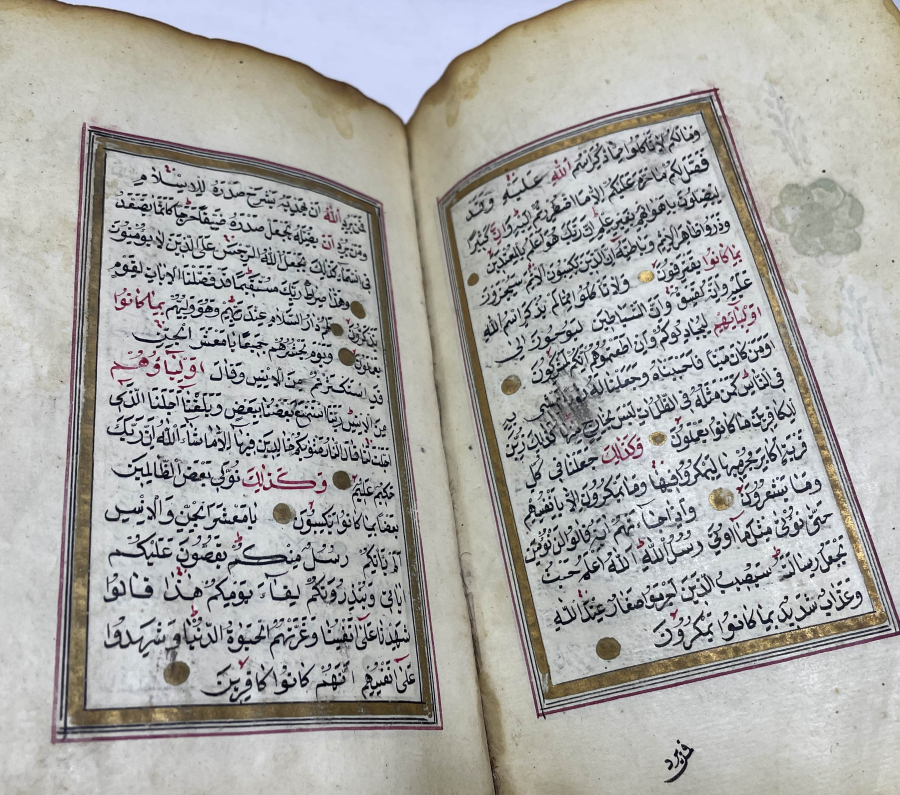 وما لكم الا تاكلوا مما ذكر اسم الله عليه وقد
فصل لكم ما حرم عليكم الا ما اضطررتم اليه وان كثيرا
ليضلون باهوائهم بغير علم ان ربك هو اعلم بالمعتدين
وذروا ظاهر الاثم وباطنه ان الذين يكسبون الاثم سيجزون
بما كانوا يقترفون ولا تاكلوا مما لم يذكر اسم الله
عليه وانه لفسق وان الشياطين ليوحون الى
اوليائهم ليجادلوكم وان اطعتموهم انكم لمشركون
اومن كان ميتا فاحييناه وجعلنا له نورا يمشي به
في الناس كمن مثله في الظلمات ليس بخارج منها كذلك زين
للكافرين ما كانوا يعملون وكذلك جعلنا في كل
قرية اكابر مجرميها ليمكروا فيها وما يمكرون الا بانفسهم
وما يشعرون واذا جاءتهم اية قالوا لن نؤمن
حتى نؤتى مثل ما اوتي رسل الله الله اعلم حيث
يجعل رسالته سيصيب الذين اجرموا صغار عند الله
وعذاب شديد بما كانوا يمكرون
فمن يرد
فمن يرد الله ان يهديه يشرح صدره للاسلام
ومن يرد ان يضله يجعل صدره ضيقا حرجا كانما يصعد
في السماء كذلك يجعل الله الرجس على الذين لا يؤمنون
وهذا صراط ربك مستقيما قد فصلنا الايات لقوم
يذكرون لهم دار السلام عند ربهم وهو وليهم بما كانوا
يعملون ويوم يحشرهم جميعا يا معشر الجن
قد استكثرتم من الانس وقال اولياؤهم
من الانس ربنا استمتع بعضنا ببعض وبلغنا اجلنا الذي
اجلت لنا قال النار مثويكم خالدين فيها الا ما شاء الله ان ربك
حكيم عليم وكذلك نولي بعض الظالمين
بعضا بما كانوا يكسبون يا معشر الجن والانس
الم ياتكم رسل منكم يقصون عليكم
اياتي وينذرونكم لقاء يومكم هذا قالوا
شهدنا على انفسنا وغرتهم الحيوة الدنيا وشهدوا
على انفسهم انهم كانوا كافرين